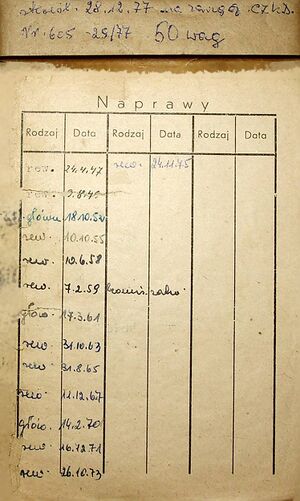 28.12.77
Nr. 605 -29/77 50 wag
Naprawy
Rodzaj Data Rodzaj Data Rodzaj Data
rew. 24.4.47 rew. 24.11.75
główna 18.10.52
rew 10.10.55
rew. 10.6.58
rew. 7.2.59
głów. 17.3.61
rew 31.10.63
rew 31.8.65
rew 11.12.67
głów. 14.2.70
rew. 16.12.71
rew. 26.10.73